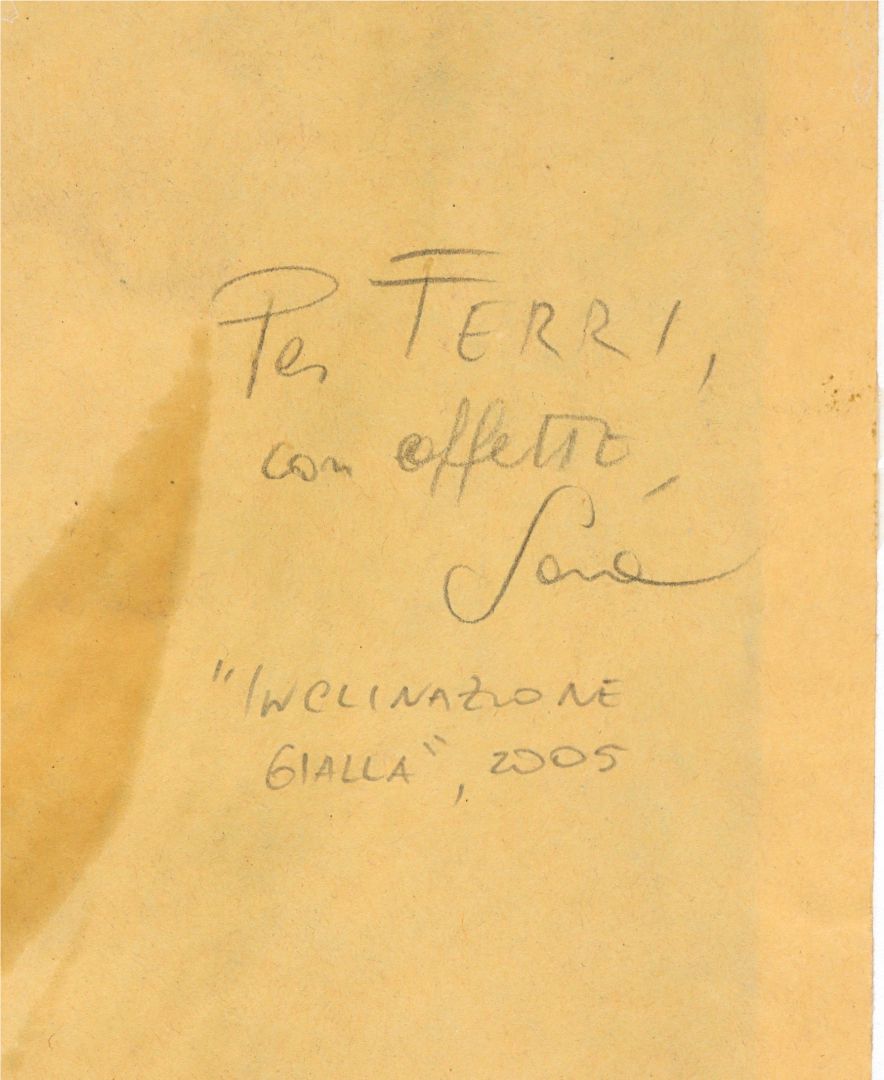 Per FERRI,
con affetto
"INCLINAZIONE
GIALLA", 2005